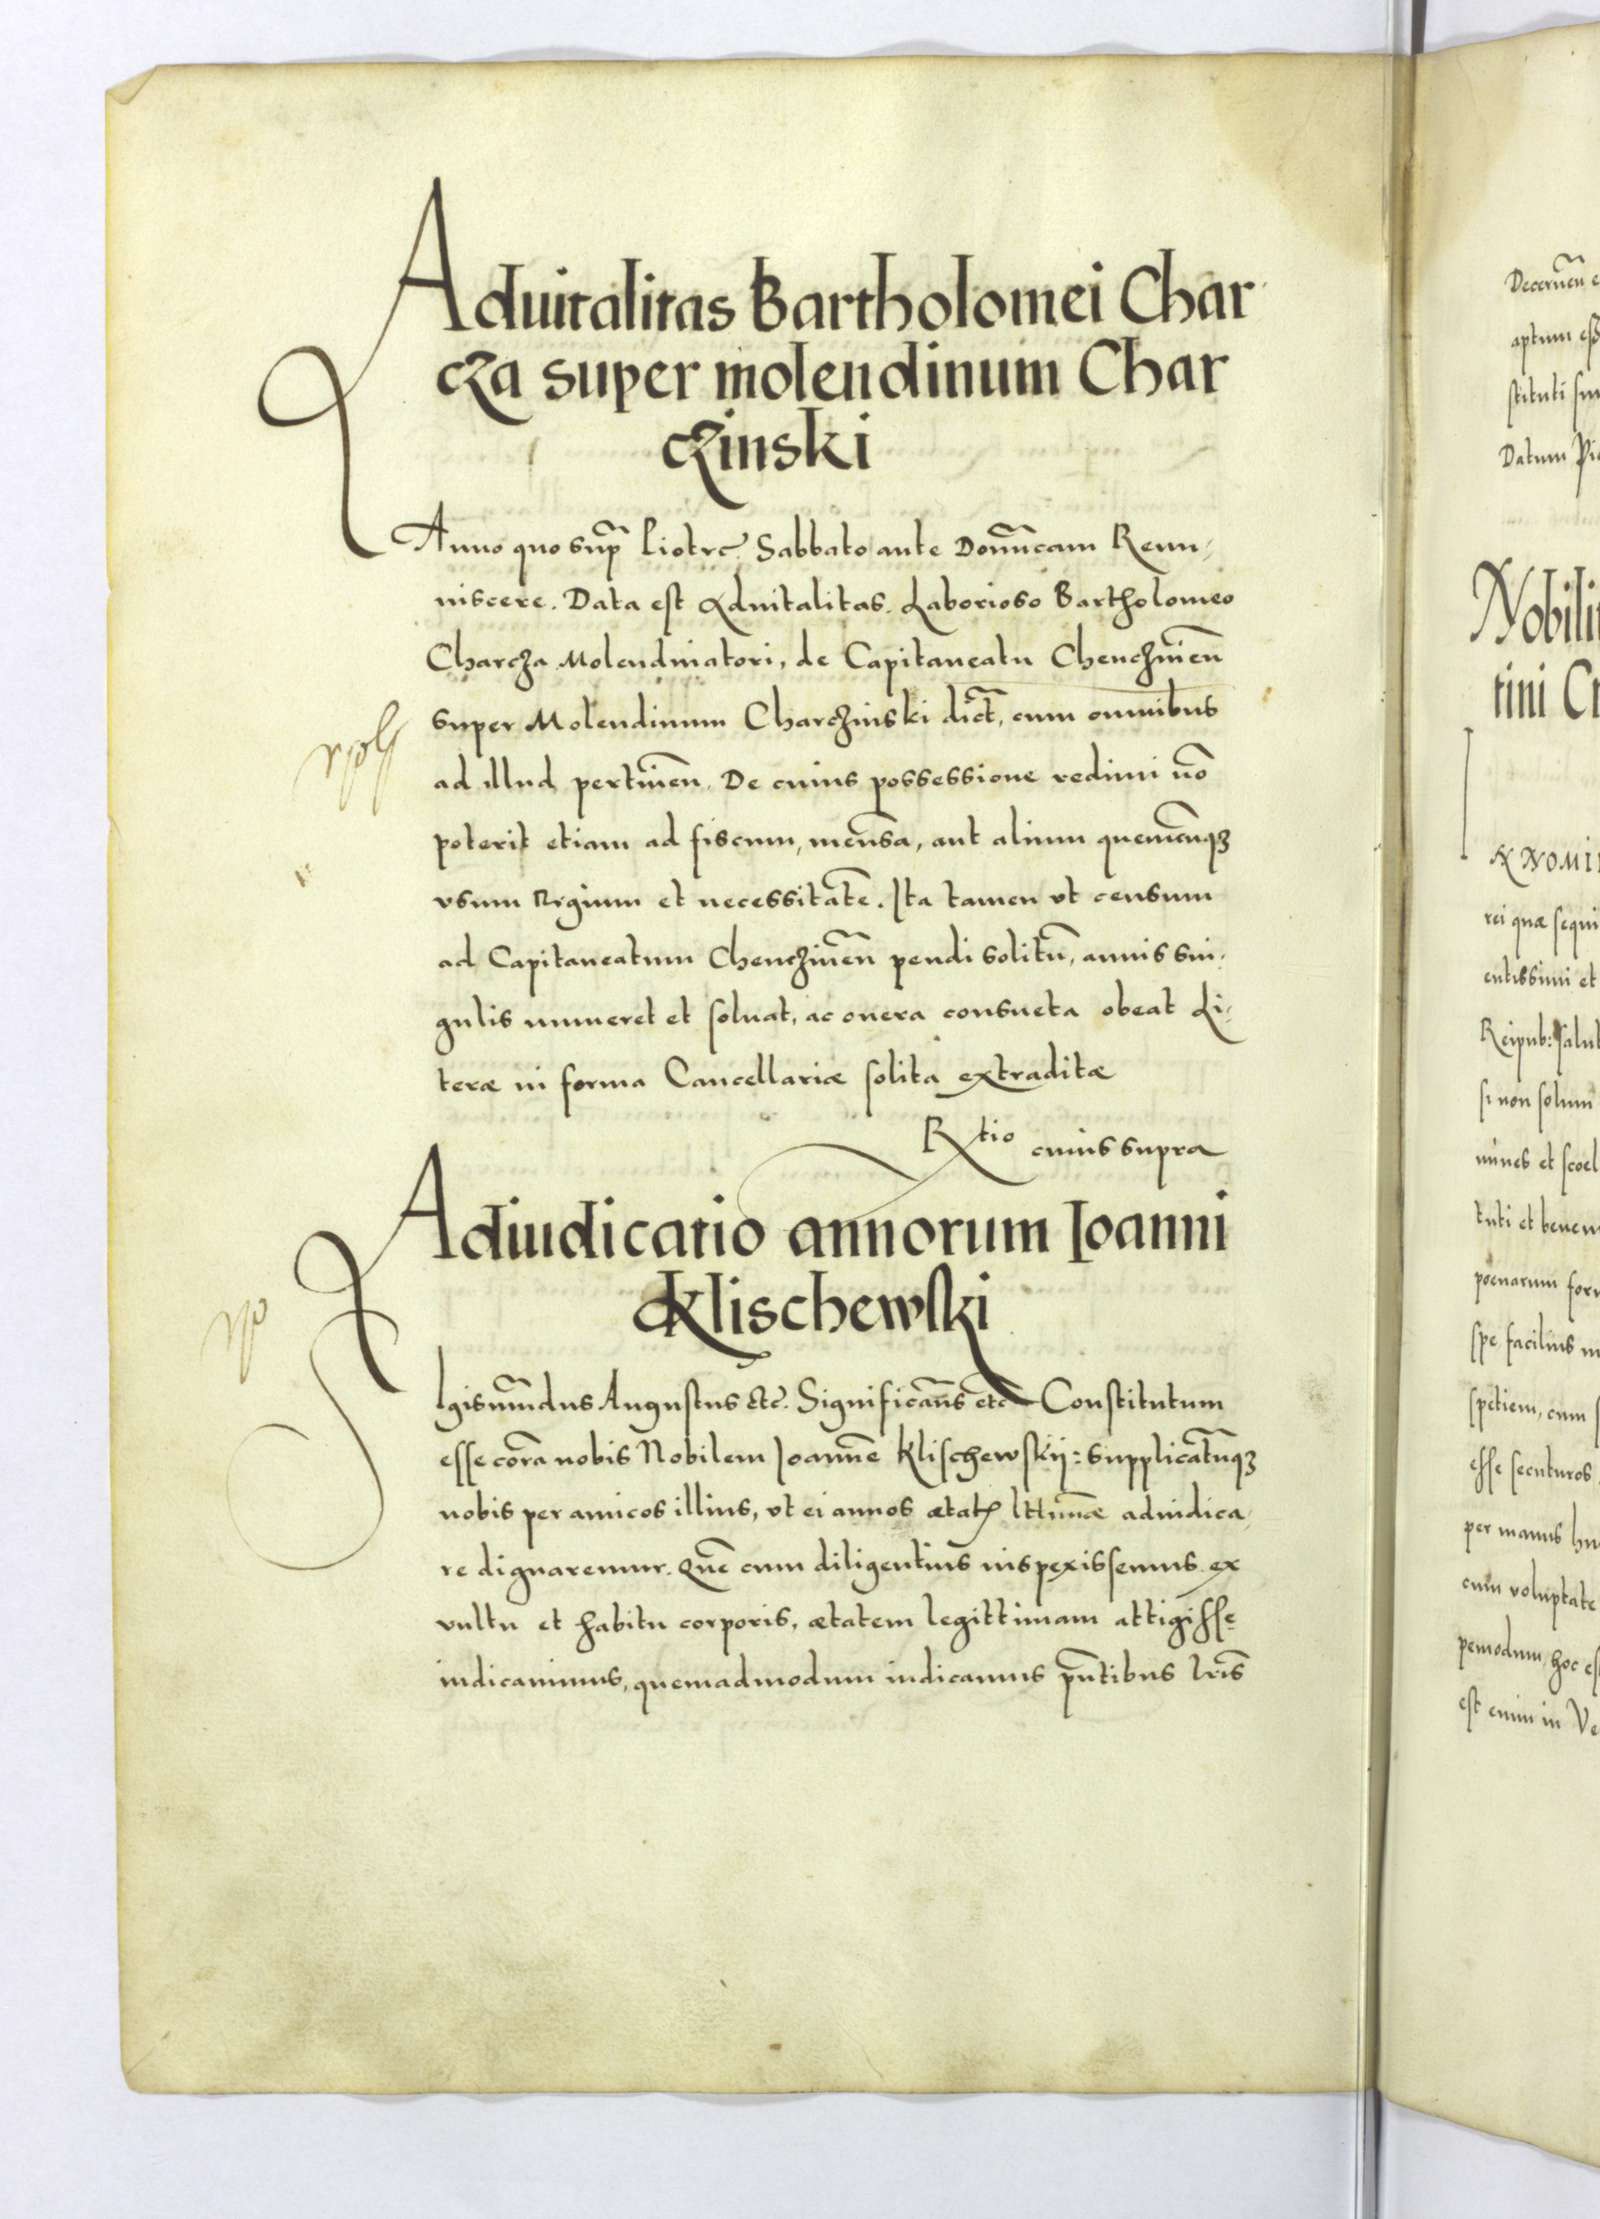 Aduitalitas Bartholomei Char
cza super molendinum Char
czinski
Anno quo sup̃ Piotrc. Sabbato ante Domĩcam Remi-
niscere. Data est Aduitalitas. Laborioso Bartholomeo
Charcza Molendinatori, de Capitaneatu Chenczineñ
super Molendinum Charczinski dict̃, cum omnibus
ad illud pertineñ. De cuius possessione redimi nõ
poterit etiam ad fiscum, mensã, aut alium quemcũqꝫ
vsum Regium et necessitatẽ. Ita tamen vt censum
ad Capitaneatum Chenczineñ pendi solitũ, annis sin-
gulis numeret et soluat, ac onera consueta obeat Li-
teræ in forma Cancellariæ solita extraditæ
Rtio cuius supra
Adiudicatio annorum Ioanni
Klischewski
Igismũdus Augustus Etc̃. Significam̃s etc̃ Constitutum
esse corã nobis Nobilem Joannẽ Klischewskij: supplicatũqꝫ
nobis per amicos illius, vt ei annos ætatꝭ lttimæ̃ adiudica-
re dignaremur. Quẽ cum diligentius inspexissemus ex
vultu et habitu corporis, ætatem legittimam attigisse
iudicauimus, quemadmodum iudicamus p̃ntibus lr̃is
Decernẽ
aptum
stituti
Datum
Nobili
tini
rei quæ sequi
entissimi et
Reipub:
si non solum
mines et
tuti et
poenarum
spe facilius
spetiem, cum
esse secuturos
per manus
cum voluptate
pemodum, hoc
est enim in